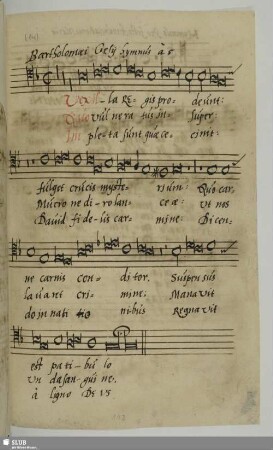 Bartholomæi Gesij Hymnus à 6
Vexilla REgis prodeunt:
Quo vulnera tus insuper
Impleta sunt quæ cecinit:
fulget crucis mysterium: Quo car-
Mucrone diro lanceæ: Vt nos
David fidelis carmine: Dicen-
ne carnis conditor. Suspensus
lavaret crimine: Manavit
do in nationibus Regnavit
est patibulo
vnda sanguine.
à ligno DEVS
SLUB